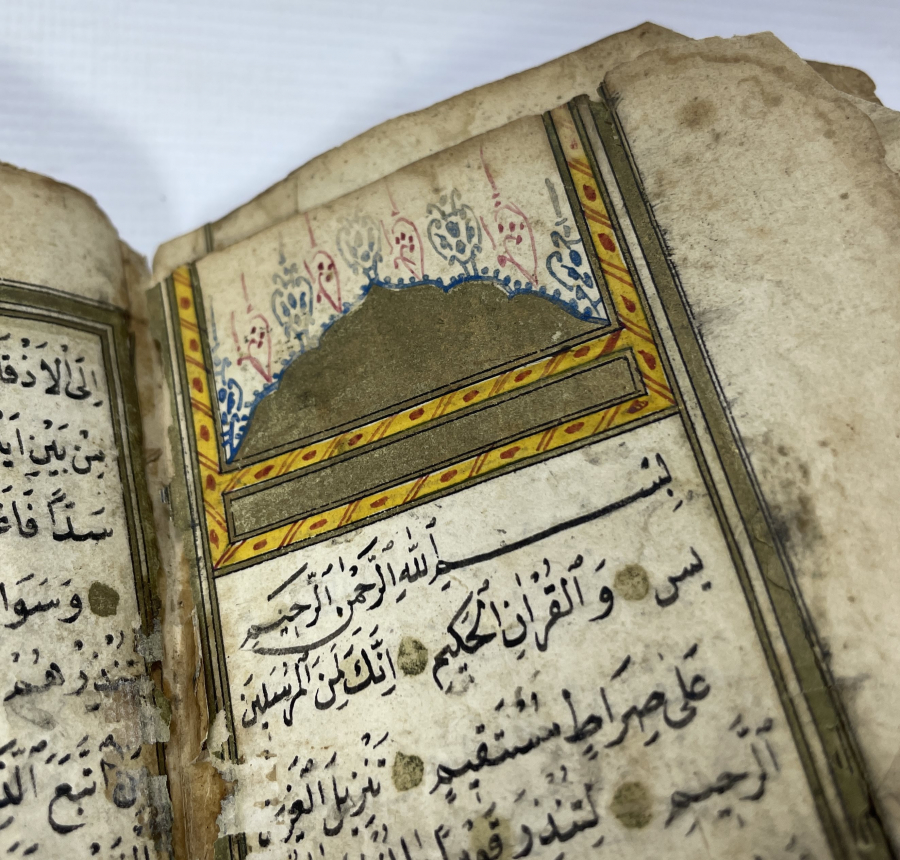 بِسْــــــمِ اللهِ الرَّحْمٰنِ الرَّحِيمِ
يس وَالْقُرْاٰنِ الْحَكِيمِ اِنَّكَ لَمِنَ الْمُرْسَلِينَ
عَلٰى صِرَاطٍ مُسْتَقِيمٍ تَنْزِيلَ الْعَزِيزِ
الرَّحِيمِ لِتُنْذِرَ قَوْمًا
اِلَى الْاَذْقَا
مِنْ بَيْنِ اَيْدِ
سَدًّا فَاَغْ
وَسَوَا
تُنْذِرْهُمْ
اتَّبَعَ الذِّ